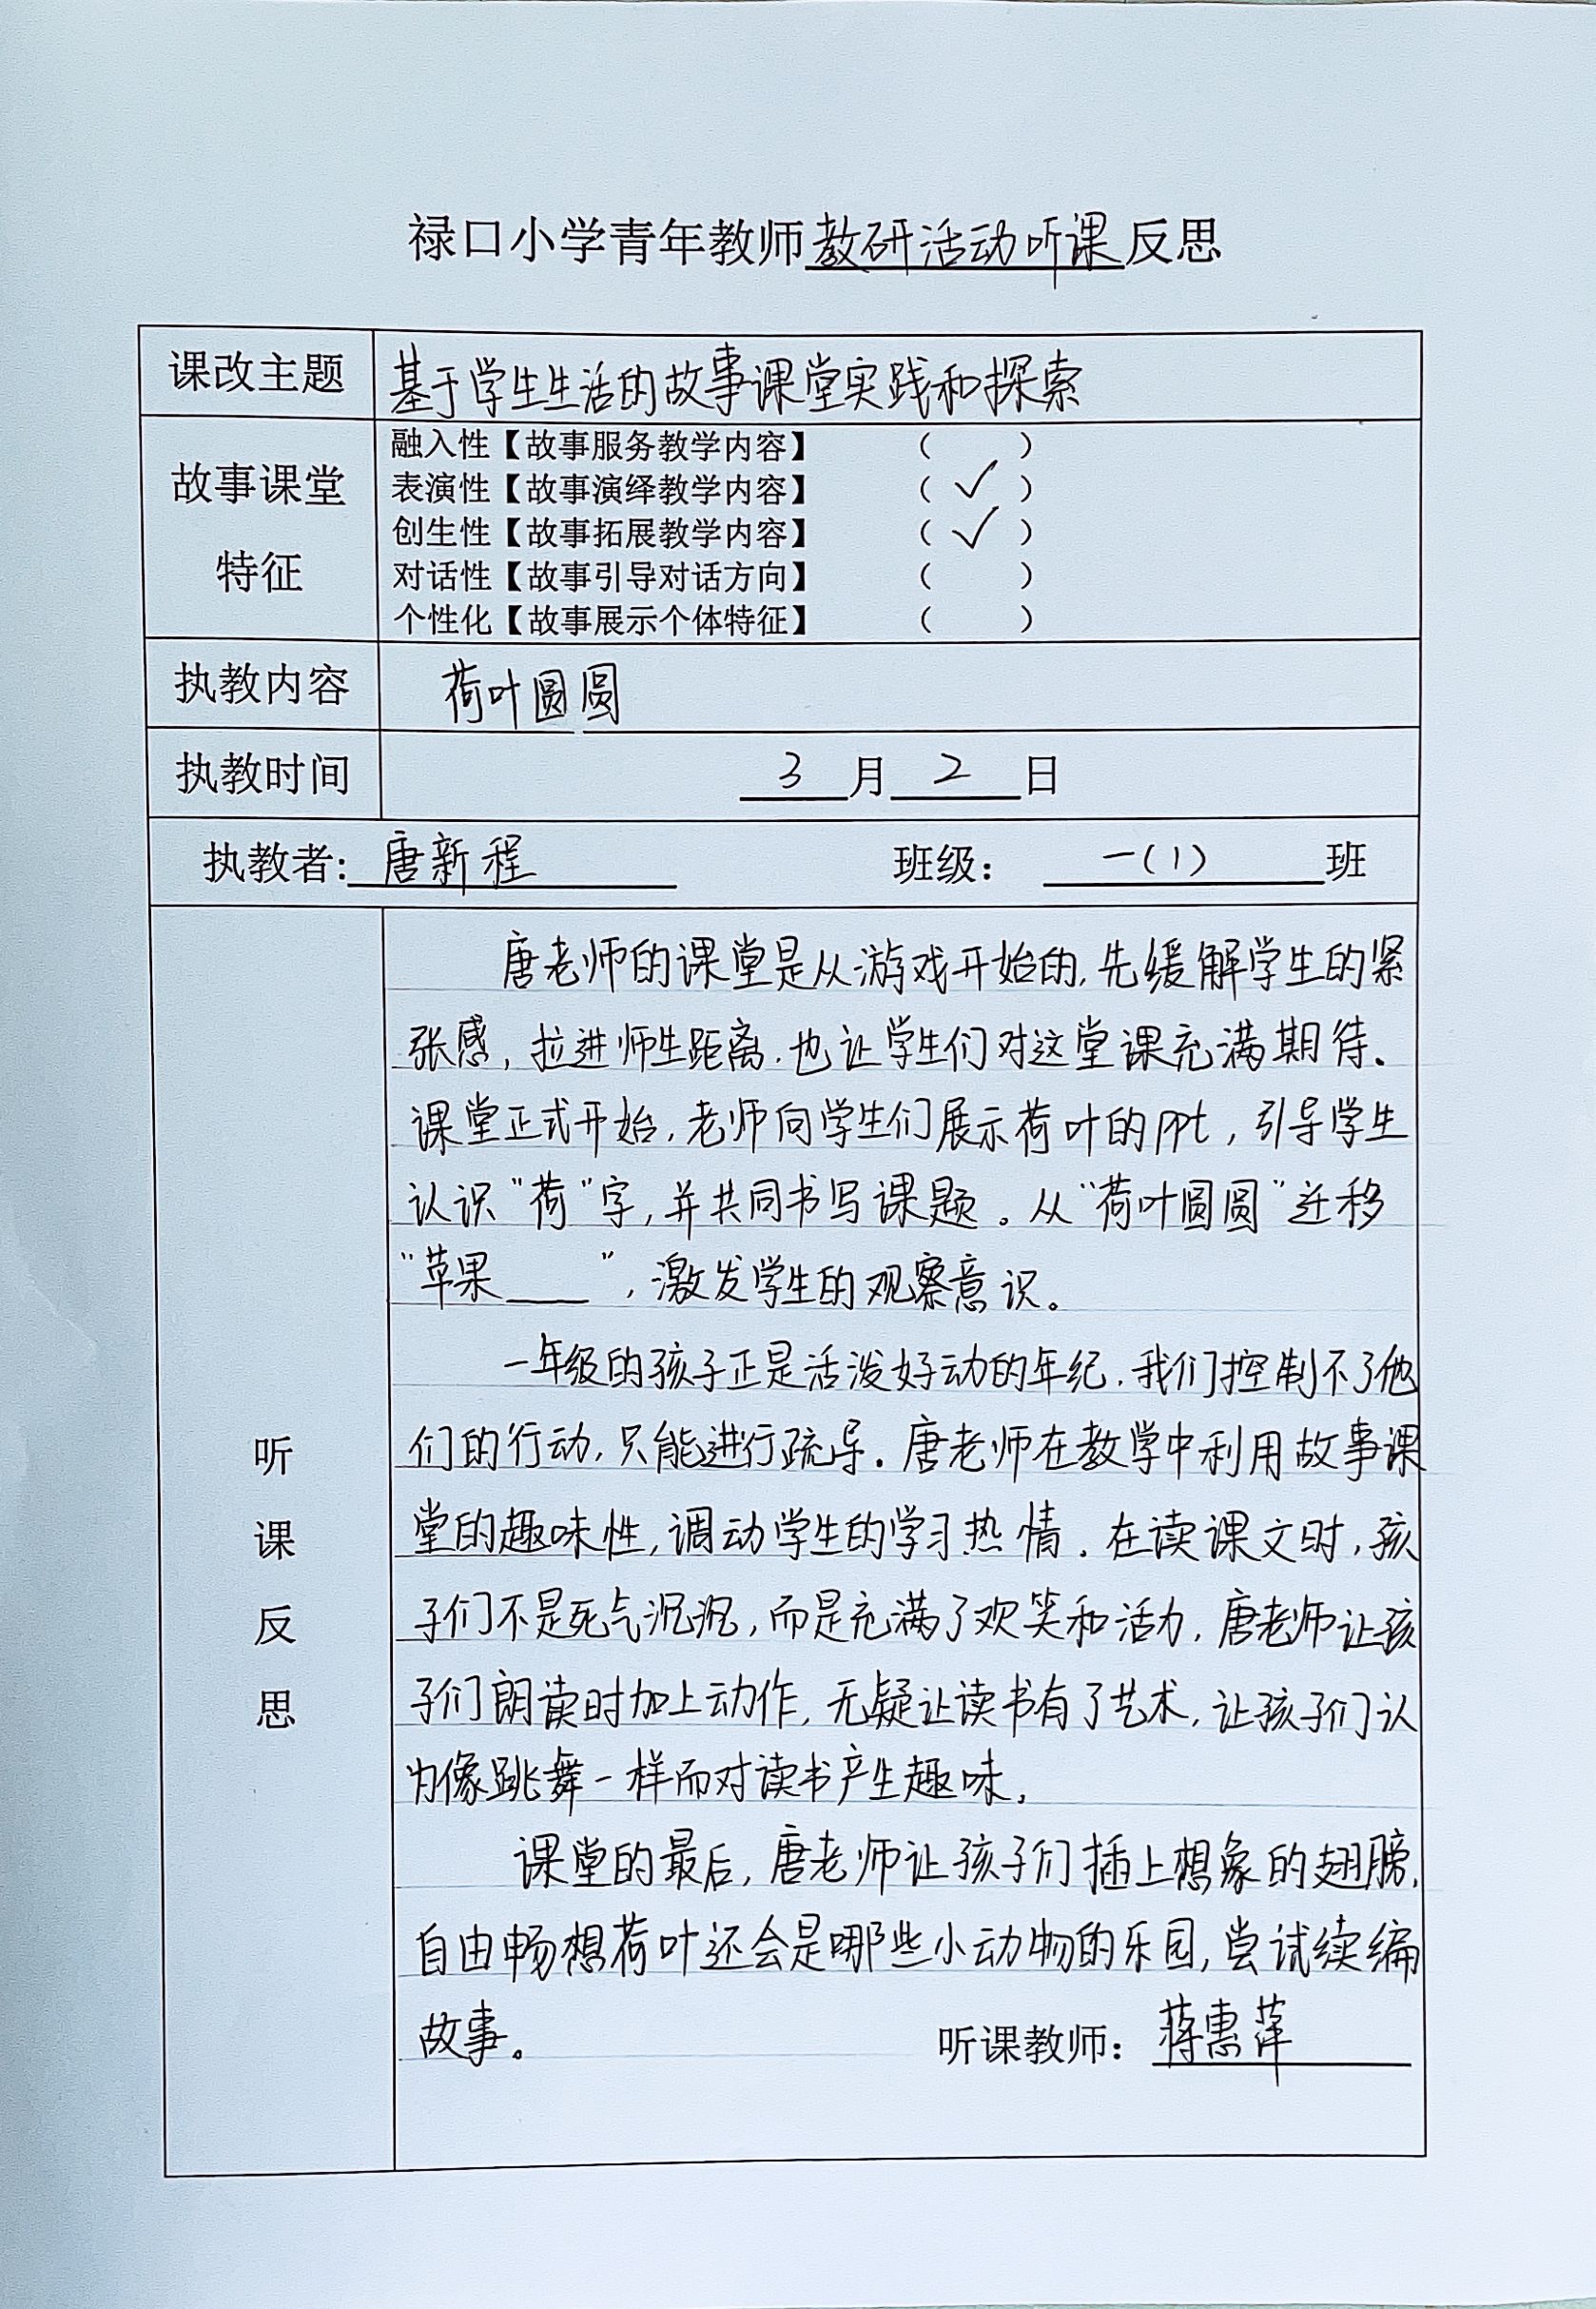 禄口小学青年教师教研活动听课反思
课改主题 基于学生生活的故事课堂实践和探索
故事课堂特征
融入性【故事服务教学内容】 （ ）
表演性【故事演绎教学内容】 （ ✓ ）
创生性【故事拓展教学内容】 （ ✓ ）
对话性【故事引导对话方向】 （ ）
个性化【故事展示个体特征】 （ ）
执教内容 荷叶圆圆
执教时间 3月2日
执教者：唐新程 班级：一（1）班
听课反思
唐老师的课堂是从游戏开始的，先缓解学生的紧
张感，拉进师生距离，也让学生们对这堂课充满期待。
课堂正式开始，老师向学生们展示荷叶的ppt，引导学生
认识“荷”字，并共同书写课题。从“荷叶圆圆”迁移
“苹果____”，激发学生的观察意识。
一年级的孩子正是活泼好动的年纪，我们控制不了他
们的行动，只能进行疏导。唐老师在教学中利用故事课
堂的趣味性，调动学生的学习热情。在读课文时，孩
子们不是死气沉沉，而是充满了欢笑和活力，唐老师让孩
子们朗读时加上动作，无疑让读书有了艺术，让孩子们认
为像跳舞一样而对读书产生趣味。
课堂的最后，唐老师让孩子们插上想象的翅膀，
自由畅想荷叶还会是哪些小动物的乐园，尝试续编
故事。
听课教师：蒋惠萍